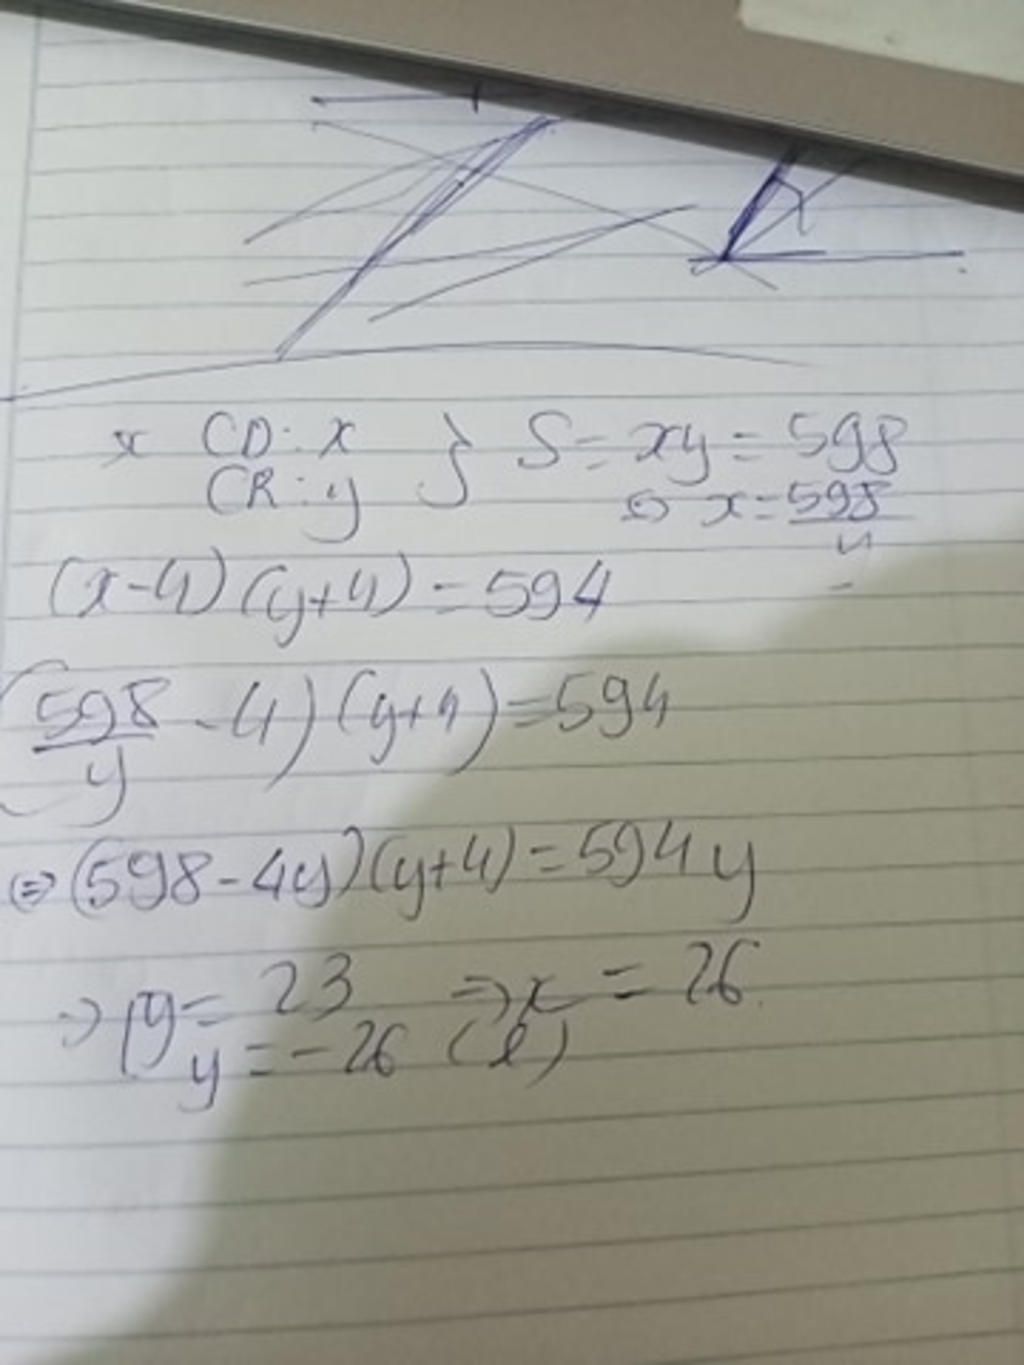 * CD: x } S = xy = 598
CR: y ⇔ x = 598/y
(x-4)(y+4) = 594
(598/y - 4)(y+4) = 594
⇔ (598 - 4y)(y+4) = 594y
⇒ [y = 23 ⇒ x = 26
y = -26 (l)